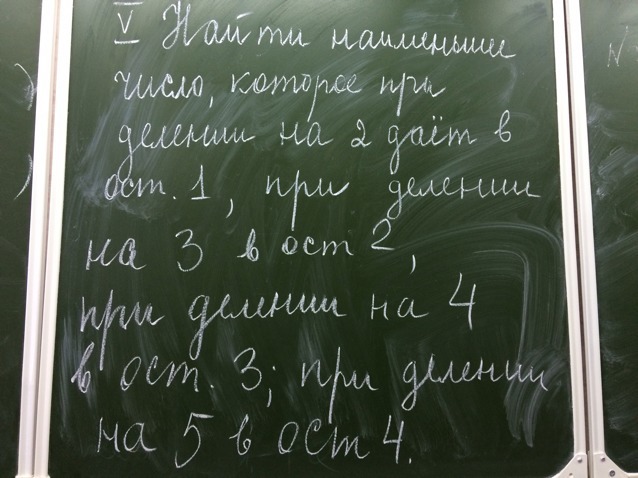 V Найти наименьшее
число, которое при
делении на 2 даёт в
ост. 1, при делении
на 3 в ост 2,
при делении на 4
в ост. 3; при делении
на 5 в ост 4.
N